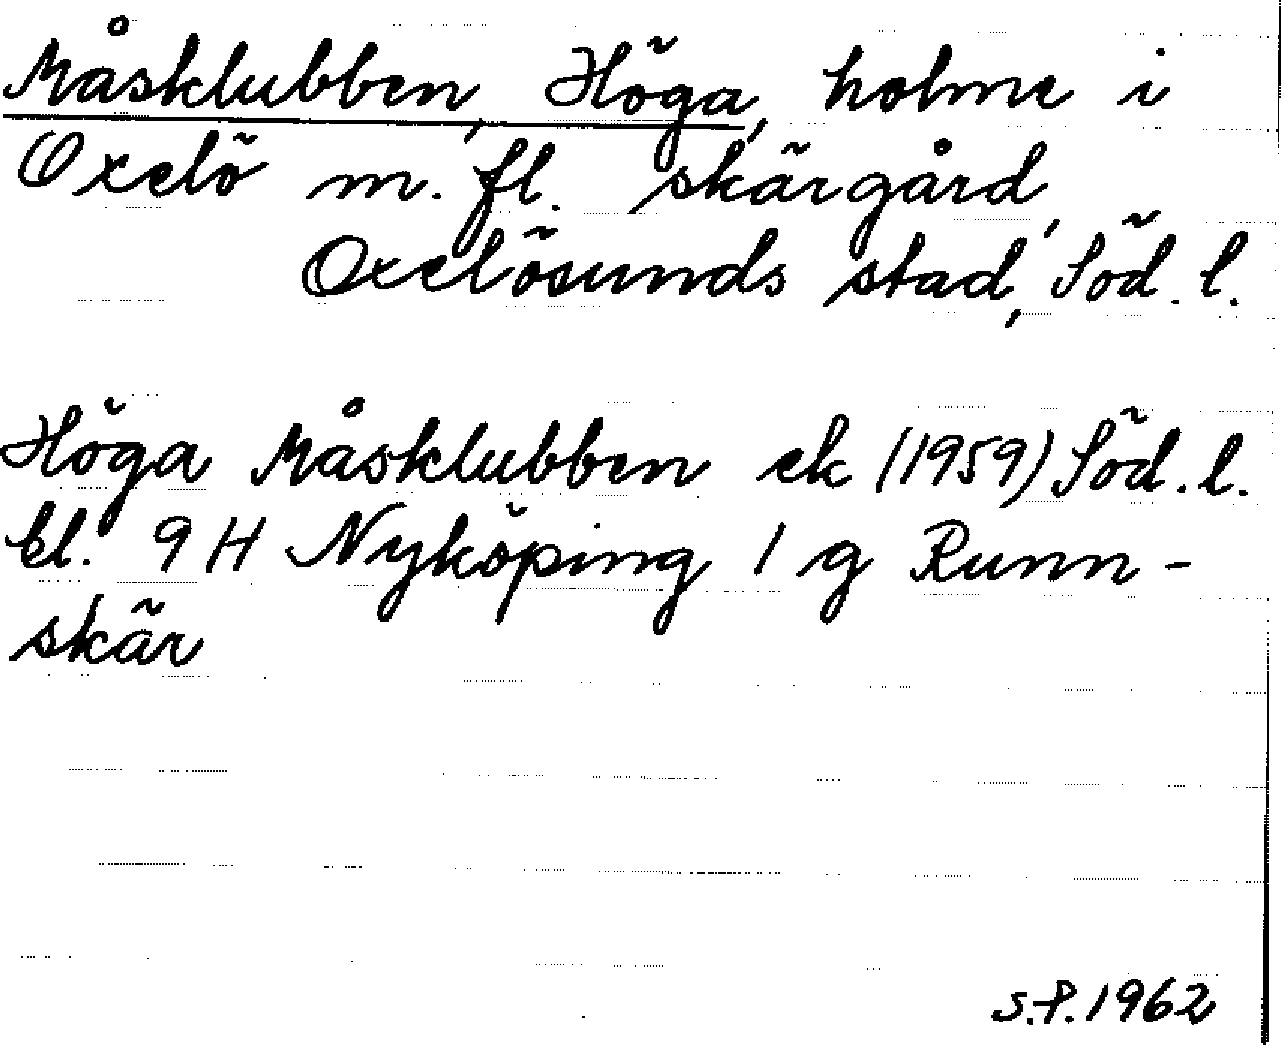 Måsklubben, Höga, holme i
Oxelö m. fl. skärgård,
Oxelösunds stad, Söd. l.
Höga Måsklubben ek (1959) Söd. l.
bl. 9 H Nyköping 1 g Runn-
skär
S.P. 1962